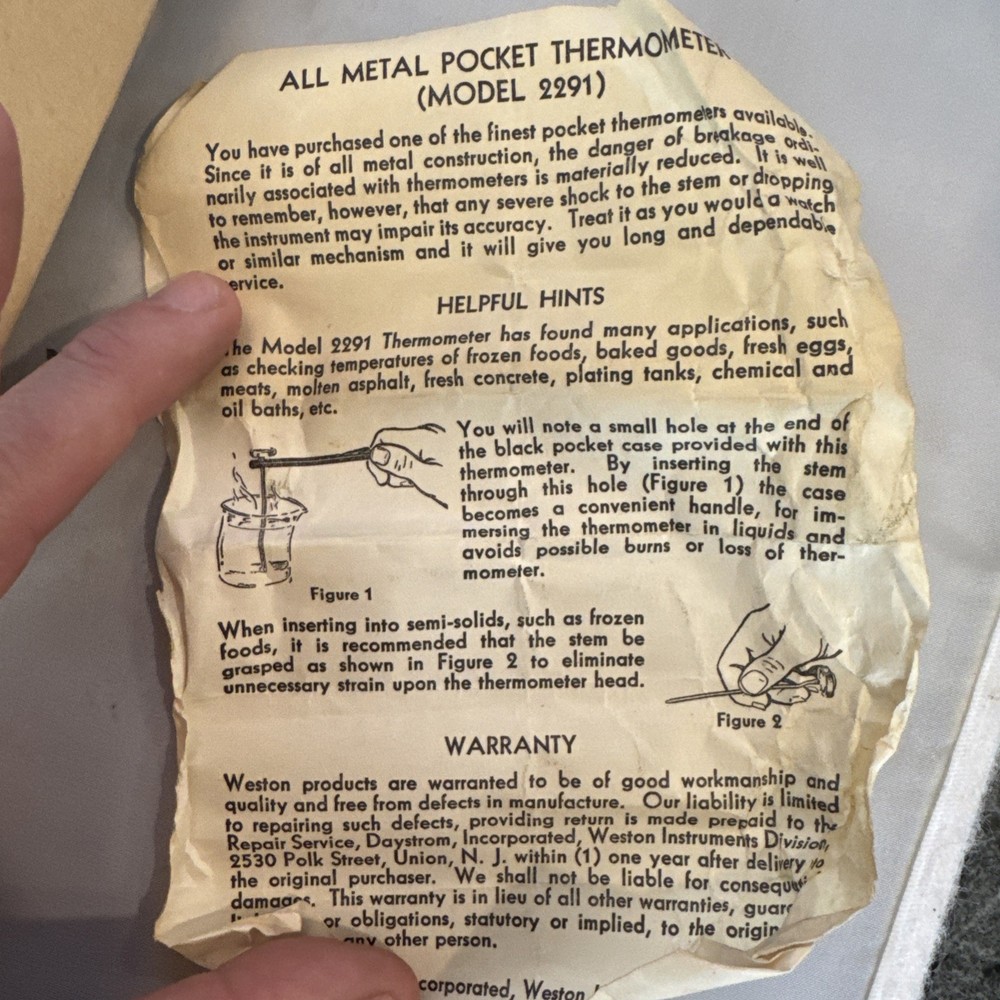 ALL METAL POCKET THERMOMETER
(MODEL 2291)
You have purchased one of the finest pocket thermometers available.
Since it is of all metal construction, the danger of breakage ordi-
narily associated with thermometers is materially reduced. It is well
to remember, however, that any severe shock to the stem or dropping
the instrument may impair its accuracy. Treat it as you would a watch
or similar mechanism and it will give you long and dependable
ervice.
HELPFUL HINTS
he Model 2291 Thermometer has found many applications, such
as checking temperatures of frozen foods, baked goods, fresh eggs,
meats, molten asphalt, fresh concrete, plating tanks, chemical and
oil baths, etc.
You will note a small hole at the end of
the black pocket case provided with this
thermometer. By inserting the stem
through this hole (Figure 1) the case
becomes a convenient handle, for im-
mersing the thermometer in liquids and
avoids possible burns or loss of ther-
mometer.
Figure 1
When inserting into semi-solids, such as frozen
foods, it is recommended that the stem be
grasped as shown in Figure 2 to eliminate
unnecessary strain upon the thermometer head.
Figure 2
WARRANTY
Weston products are warranted to be of good workmanship and
quality and free from defects in manufacture. Our liability is limited
to repairing such defects, providing return is made prepaid to the
Repair Service, Daystrom, Incorporated, Weston Instruments Division,
2530 Polk Street, Union, N. J. within (1) one year after delivery to
the original purchaser. We shall not be liable for consequ
damages. This warranty is in lieu of all other warranties, guar
or obligations, statutory or implied, to the origin
any other person.
corporated, Weston